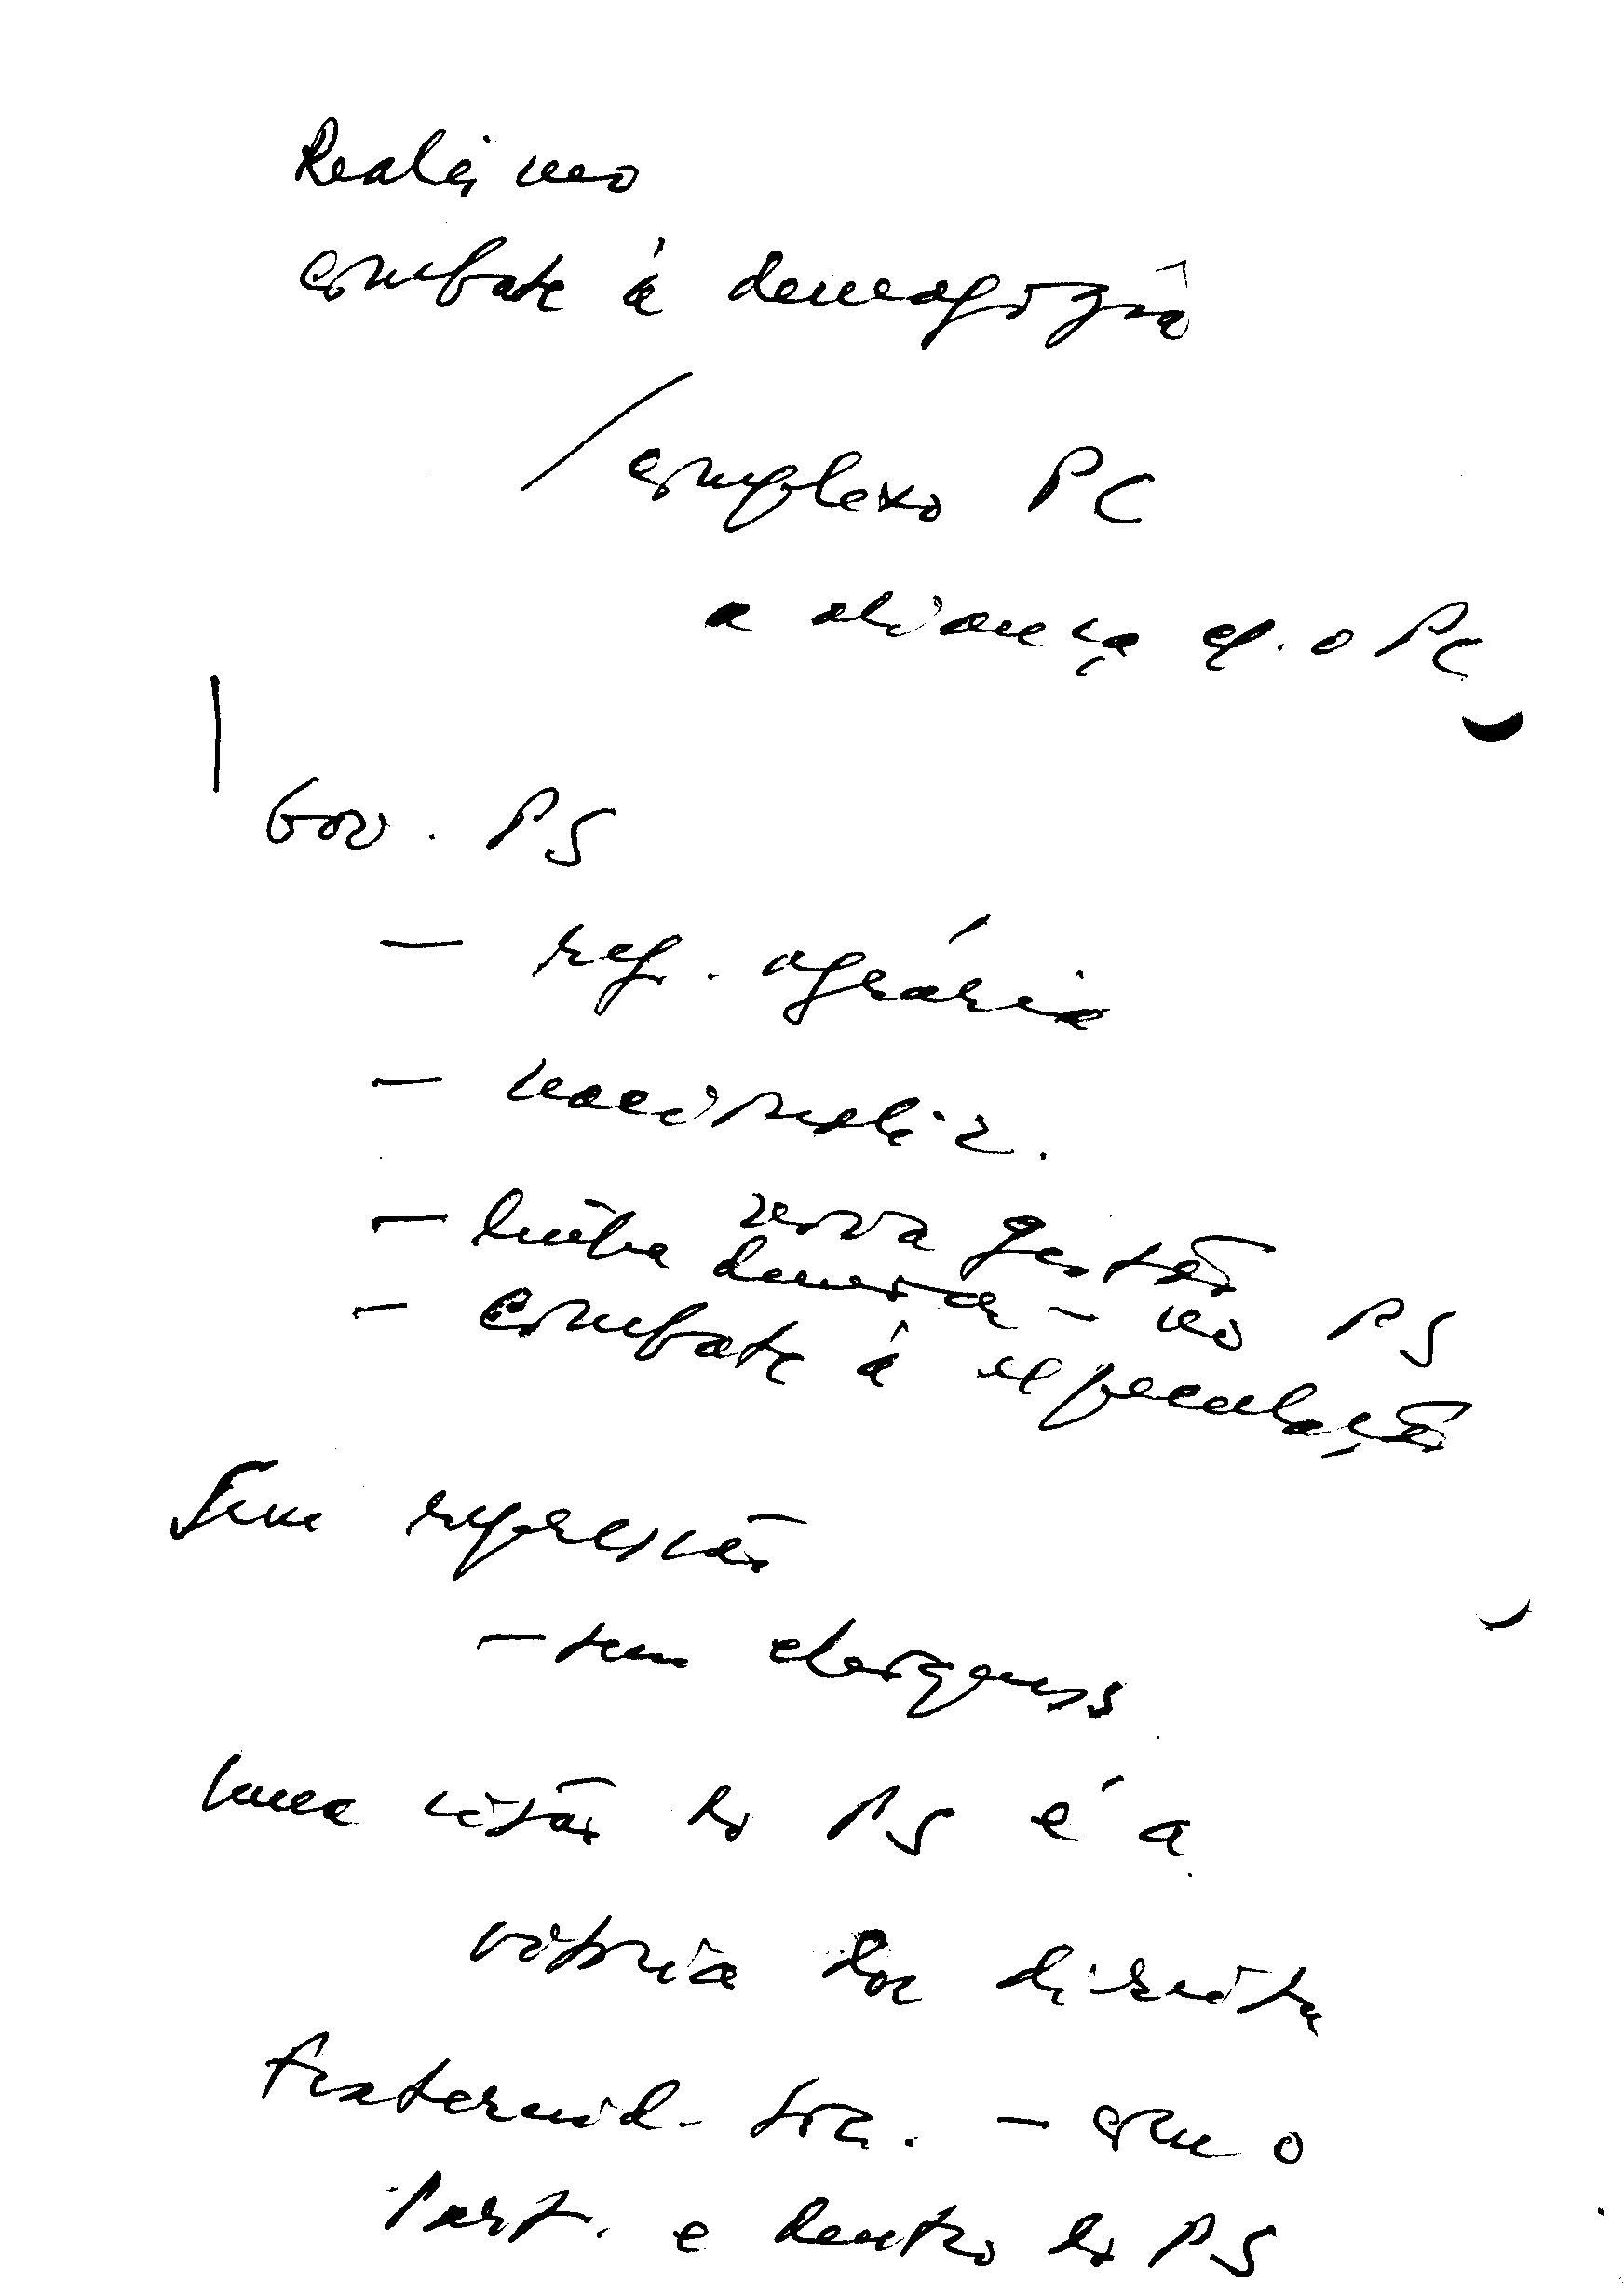 Realismo
combate à demagogia
/ complexo PC
a aliança c/. o PC
Gov. PS
- ref. agrária
- nacionaliz.
- nova gestão
linha democr - no PS
- combate à especulação
Sem repressão
- sem
uma cisão do PS é a
vitória da direita
fraternid. soc. - com o
Part. e dentro do PS